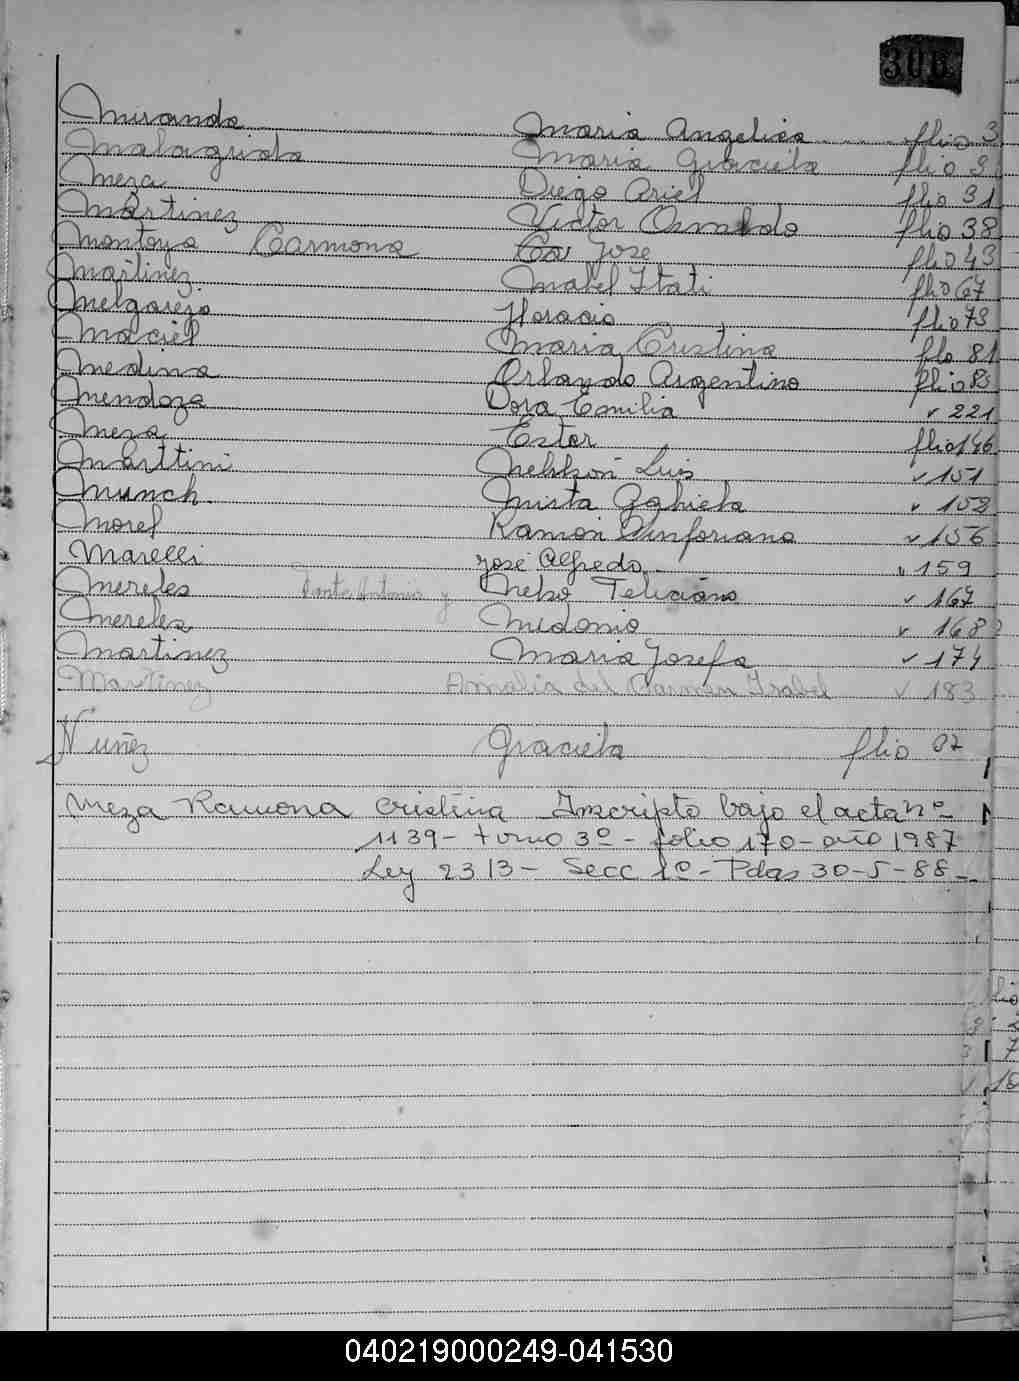 306
Miranda Maria Angelica flio 3
Malaguota Maria Graciela flio 3
Meza Diego Ariel flio 31
Martinez Victor Osvaldo flio 38
Montoya Carmona Jose flio 43
Martinez Mabel Itati flio 67
Melgarejo Horacio flio 73
Maciel Maria Cristina flo 81
Medina Orlando Argentino flio 83
Mendoza Dora Emilia v 221
Meza Ester flio 146
Marttini Luis v 151
Munch Mirta v 152
Morel Ramon Sinforiano v 156
Marelli José Alfredo v 159
Mereles y Feliciano v 167
Mereles v 168
Martinez Maria Josefa v 174
Martinez Amalia del Carmen Isabel v 183
Nuñez Graciela flio 87
Meza Ramona Cristina Inscripto bajo el acta nº
1139 - turno 3º - folio 170 - año 1987
Ley 2313 - Secc 1º - Pdas 30-5-88 -
lio
2
7
10
040219000249-041530